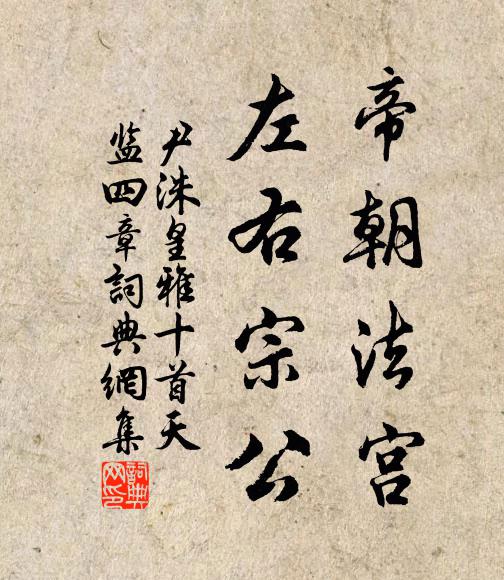 帝朝法宫
左右宗公
尹洙皇雅十首天
监四章詞典網集
詞典网印